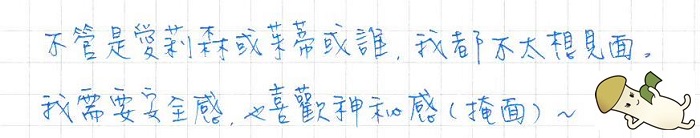 不管是愛莉森或茱蒂或誰，我都不太想見面。
我需要安全感，也喜歡神祕感（掩面）～